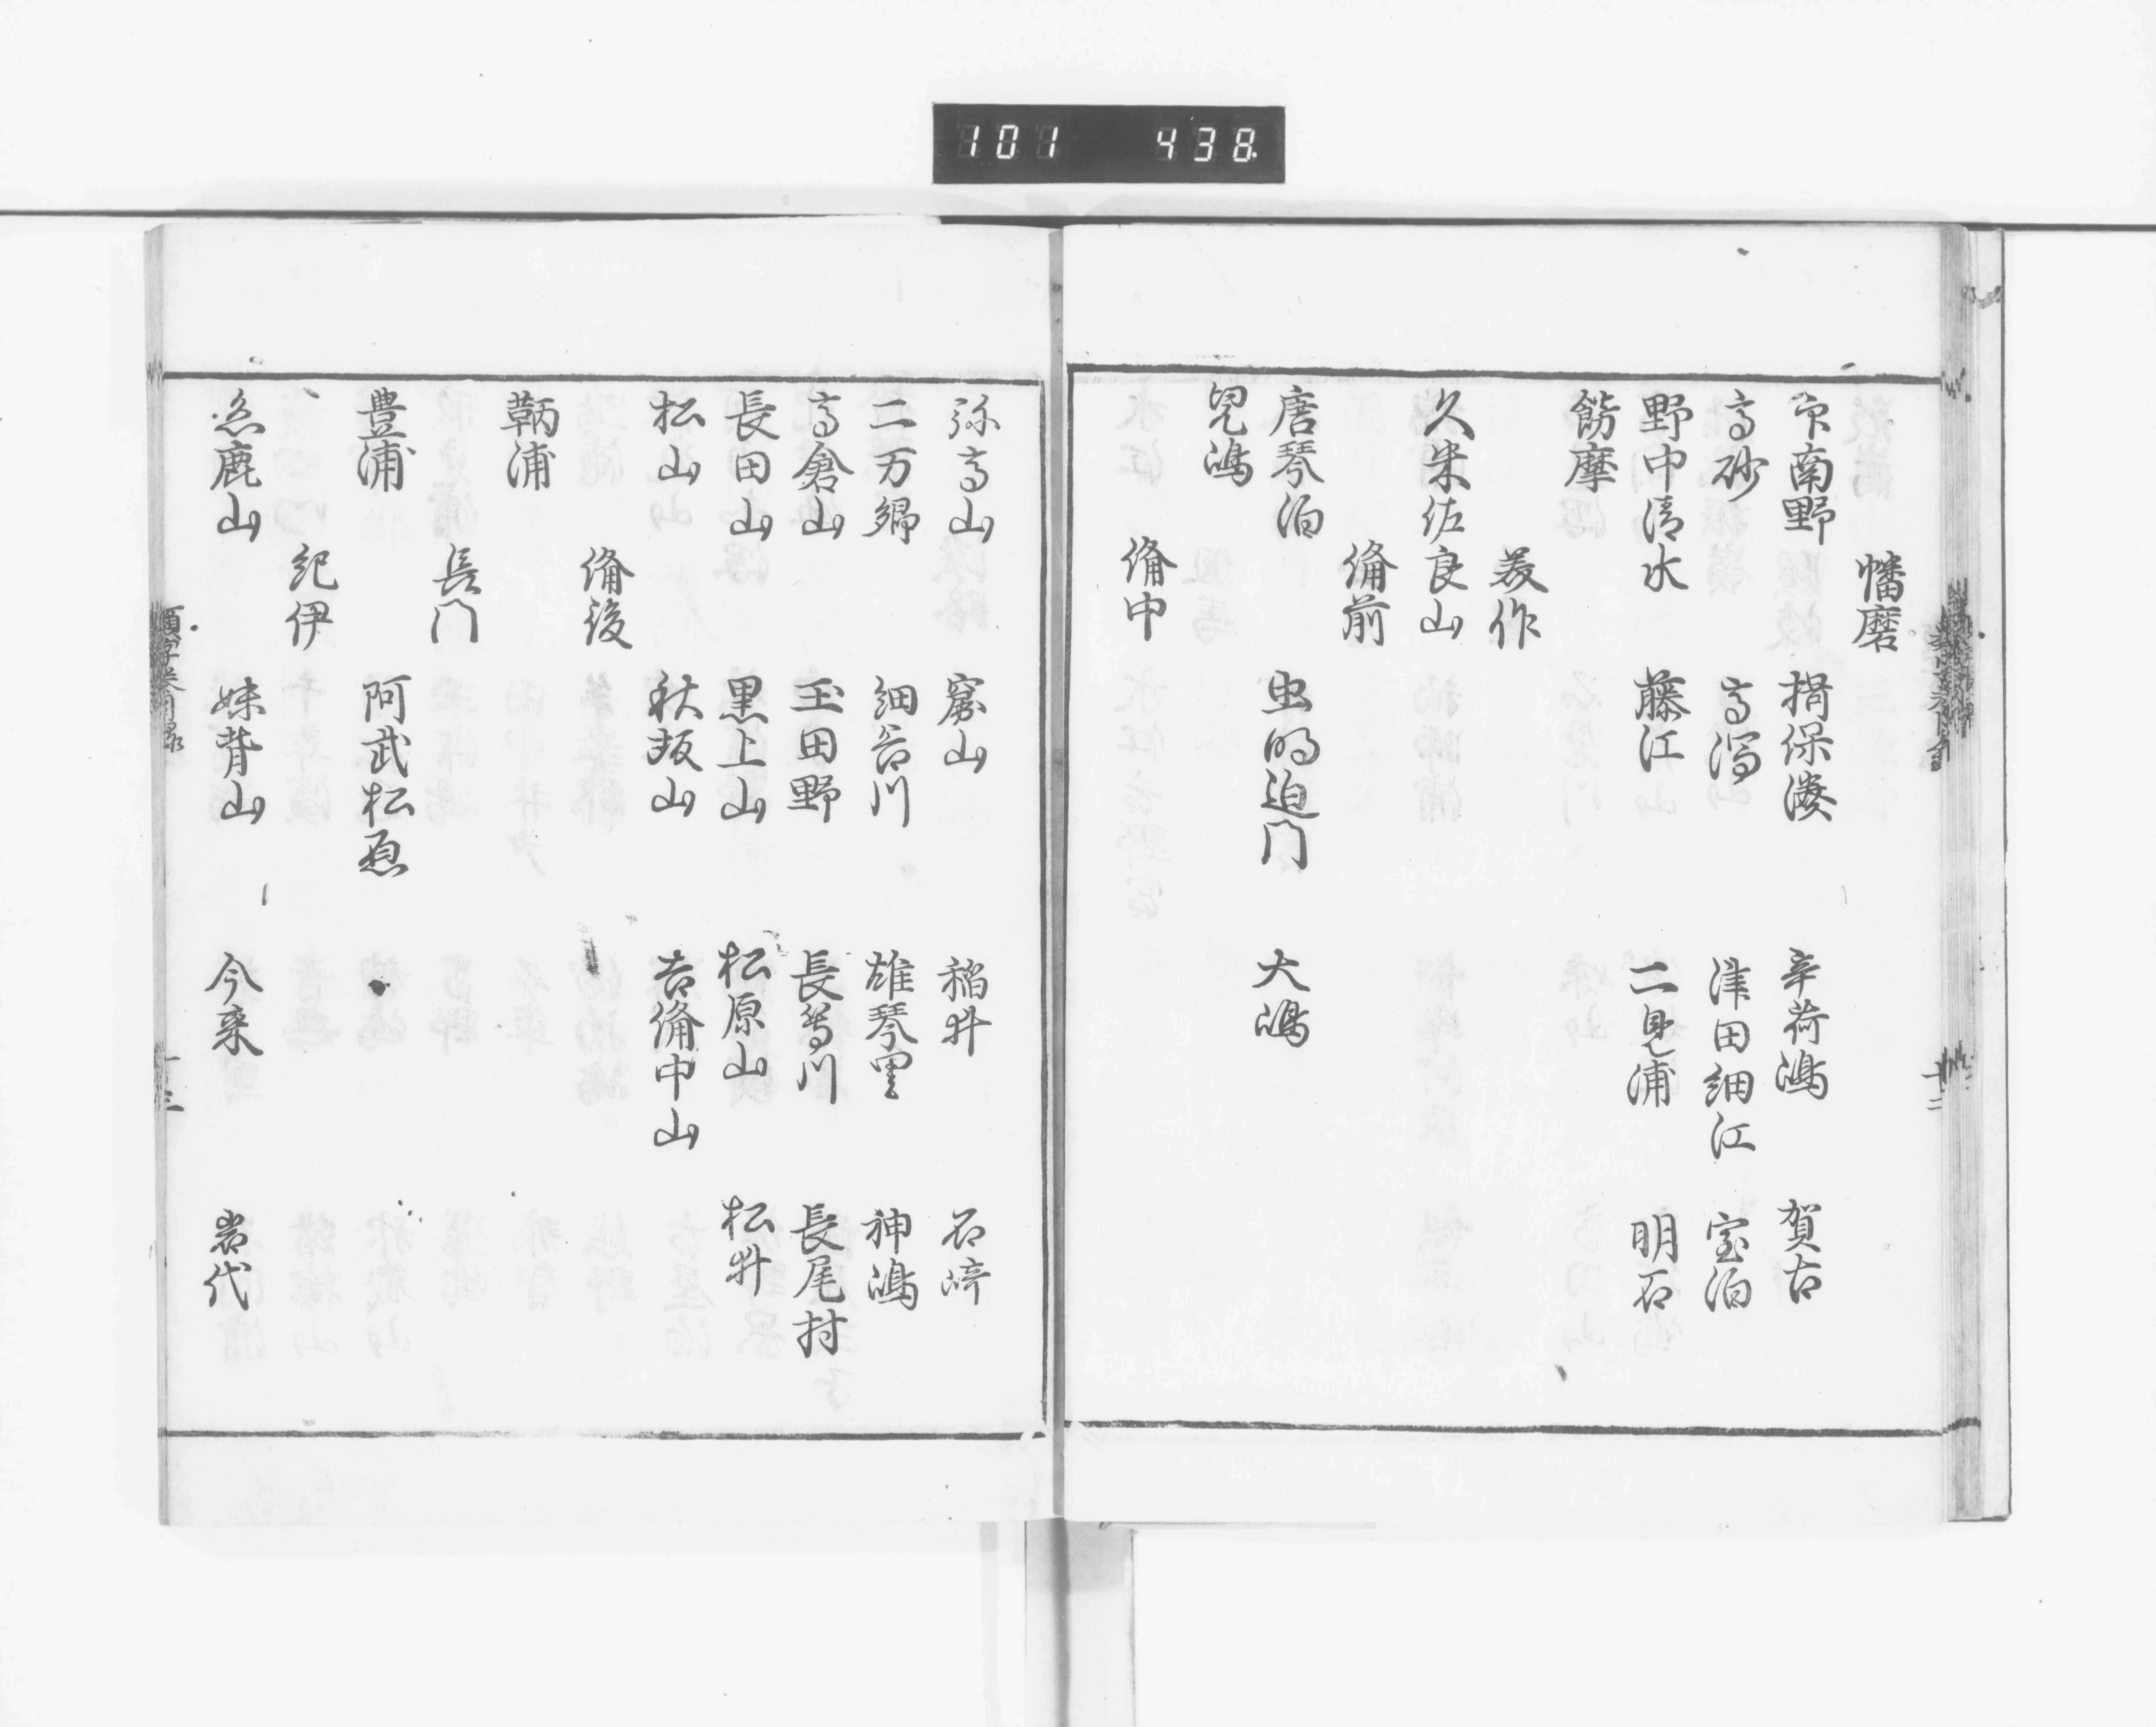 101 438
幡磨
印南野 揖保湊 辛荷嶋 賀古
高砂 高潟 津田細江 室泊
野中清水 藤江 二見浦 明石
餝摩
美作
久米佐良山
備前
唐琴泊 虫明迫门 大嶋
児嶋
備中
弥高山 窟山 稲井 石崎
二万郷 細谷川 雄琴里 神嶋
高倉山 玉田野 長等川 長尾村
長田山 黒上山 松原山 松井
松山 秋坂山 吉備中山
備後
鞆浦
長门
豊浦 阿武松原
紀伊
糸鹿山 妹背山 今来 岩代
類字巻目録
十三